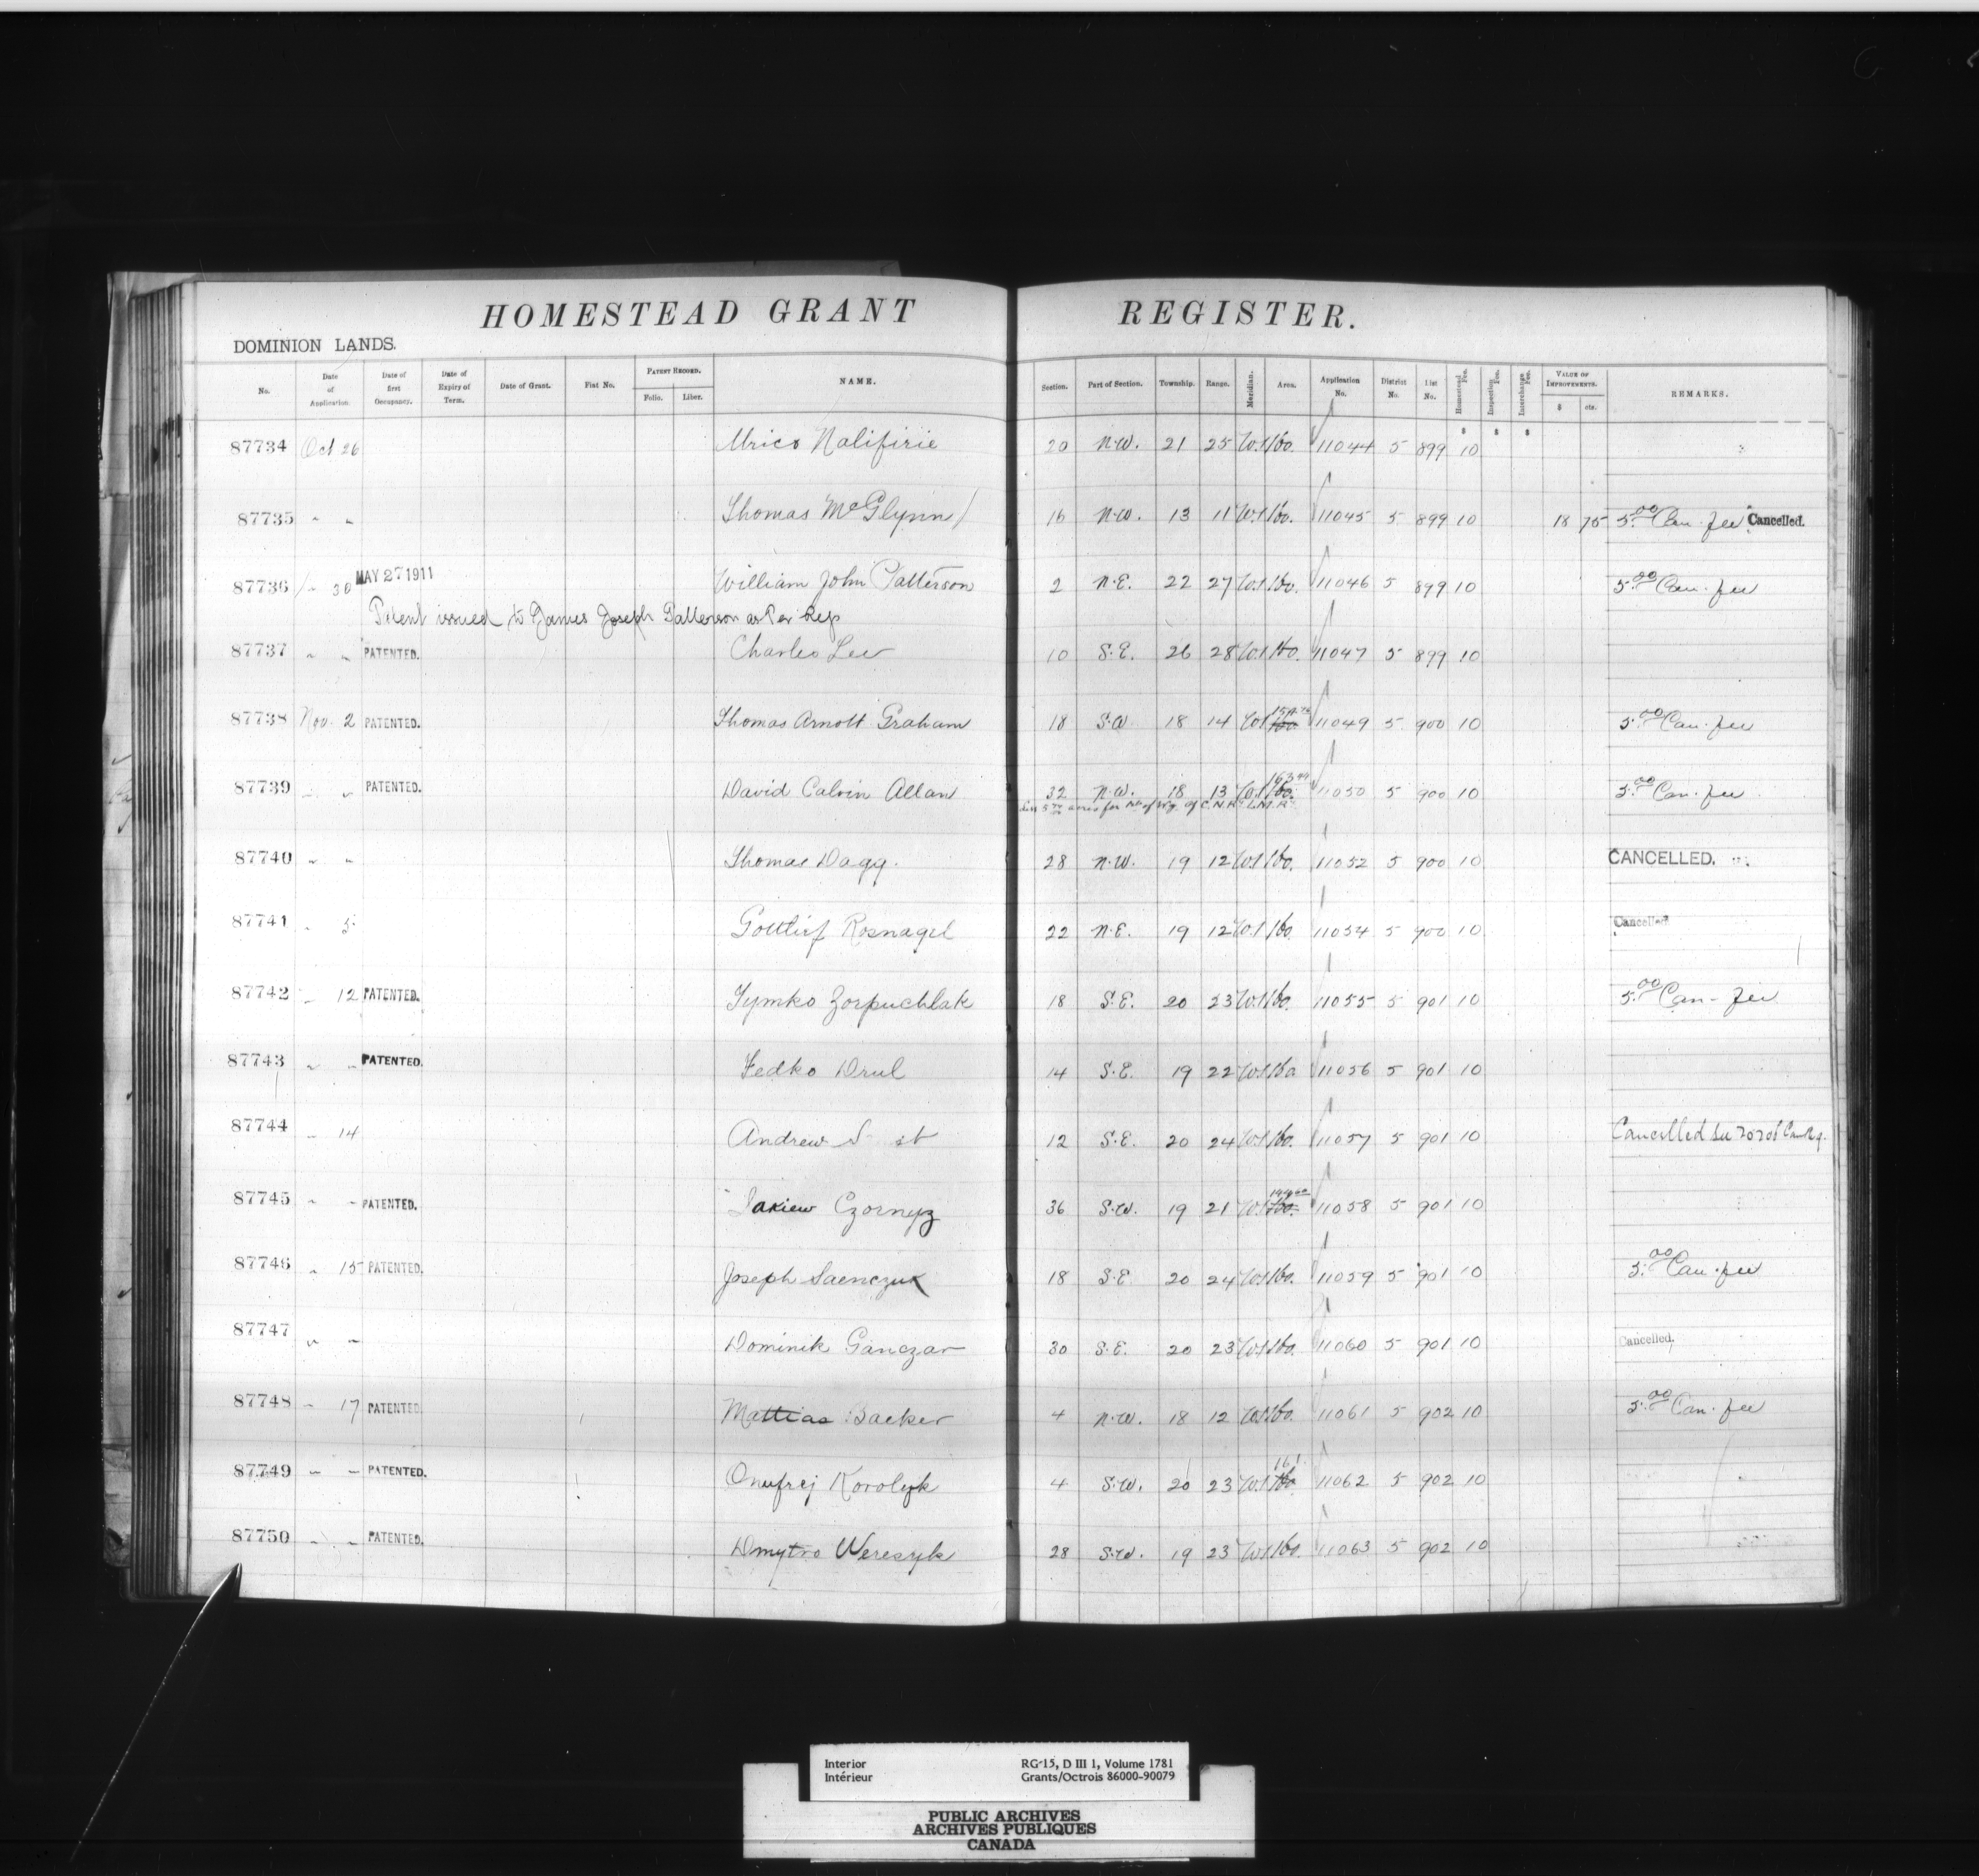 HOMESTEAD GRANT REGISTER.
DOMINION LANDS.
No. Date of Application. Date of first Occupancy. Date of Expiry of Term. Date of Grant. Fiat No. PATENT RECORD. Folio. Liber. NAME. Section. Part of Section. Township. Range. Meridian. Area. Application No. District No. List No. Homestead Fee. Inspection Fee. Interchange Fee. VALUE OF IMPROVEMENTS. $ cts. REMARKS.
$ $ $
87734 Oct 26 20 N.W. 21 25 W.1 160. 11044 5 899 10
87735 " " Thomas McGlynn 16 N.W. 13 11 W.1 160. 11045 5 899 10 18 75 5.00 Can. fee Cancelled.
87736 " 30 MAY 27 1911 William John Patterson 2 N.E. 22 27 W.1 160. 11046 5 899 10 5.00 Can. fee
Patent issued to James Joseph Patterson as Per Rep
87737 " " PATENTED. Charles Lee 10 S.E. 26 28 W.1 160. 11047 5 899 10
87738 Nov. 2 PATENTED. Thomas Arnott Graham 18 S.W 18 14 W.1 160 11049 5 900 10 5.00 Can. fee
163 44
87739 " " PATENTED. David Calvin Allan 32 N.W. 18 13 W.1 160. 11050 5 900 10 5.00 Can. fee
acres for of C.N.R.
87740 " " Thomas Dagg. 28 N.W. 19 12 W.1 160. 11052 5 900 10 CANCELLED.
87741 " 5 Rosnagel 22 N.E. 19 12 W.1 160. 11054 5 900 10 Cancelled
87742 " 12 PATENTED. Tymko Zorpuchlak 18 S.E. 20 23 W.1 160. 11055 5 901 10 5.00 Can. fee
87743 " " PATENTED. Fedko Drul 14 S.E. 19 22 W.1 160 11056 5 901 10
87744 " 14 Andrew 12 S.E. 20 24 W.1 160. 11057 5 901 10 Cancelled
87745 " " PATENTED. Czornyz 36 S.W. 19 21 W.1 160. 11058 5 901 10
87746 " 15 PATENTED. Joseph Saenczuk 18 S.E 20 24 W.1 160. 11059 5 901 10 5.00 Can. fee
87747 " " Dominik Ganczar 30 S.E. 20 23 W.1 160. 11060 5 901 10 Cancelled.
87748 " 17 PATENTED Mattias Backer 4 N.W. 18 12 W.1 160. 11061 5 902 10 5.00 Can. fee
161
87749 " " PATENTED. Onufrej Korolyk 4 S.W. 20 23 W.1 160 11062 5 902 10
87750 " " PATENTED. Dmytro Weresyk 28 S.W. 19 23 W.1 160. 11063 5 902 10
Interior RG-15, D III 1, Volume 1781
Intérieur Grants/Octrois 86000-90079
PUBLIC ARCHIVES
ARCHIVES PUBLIQUES
CANADA